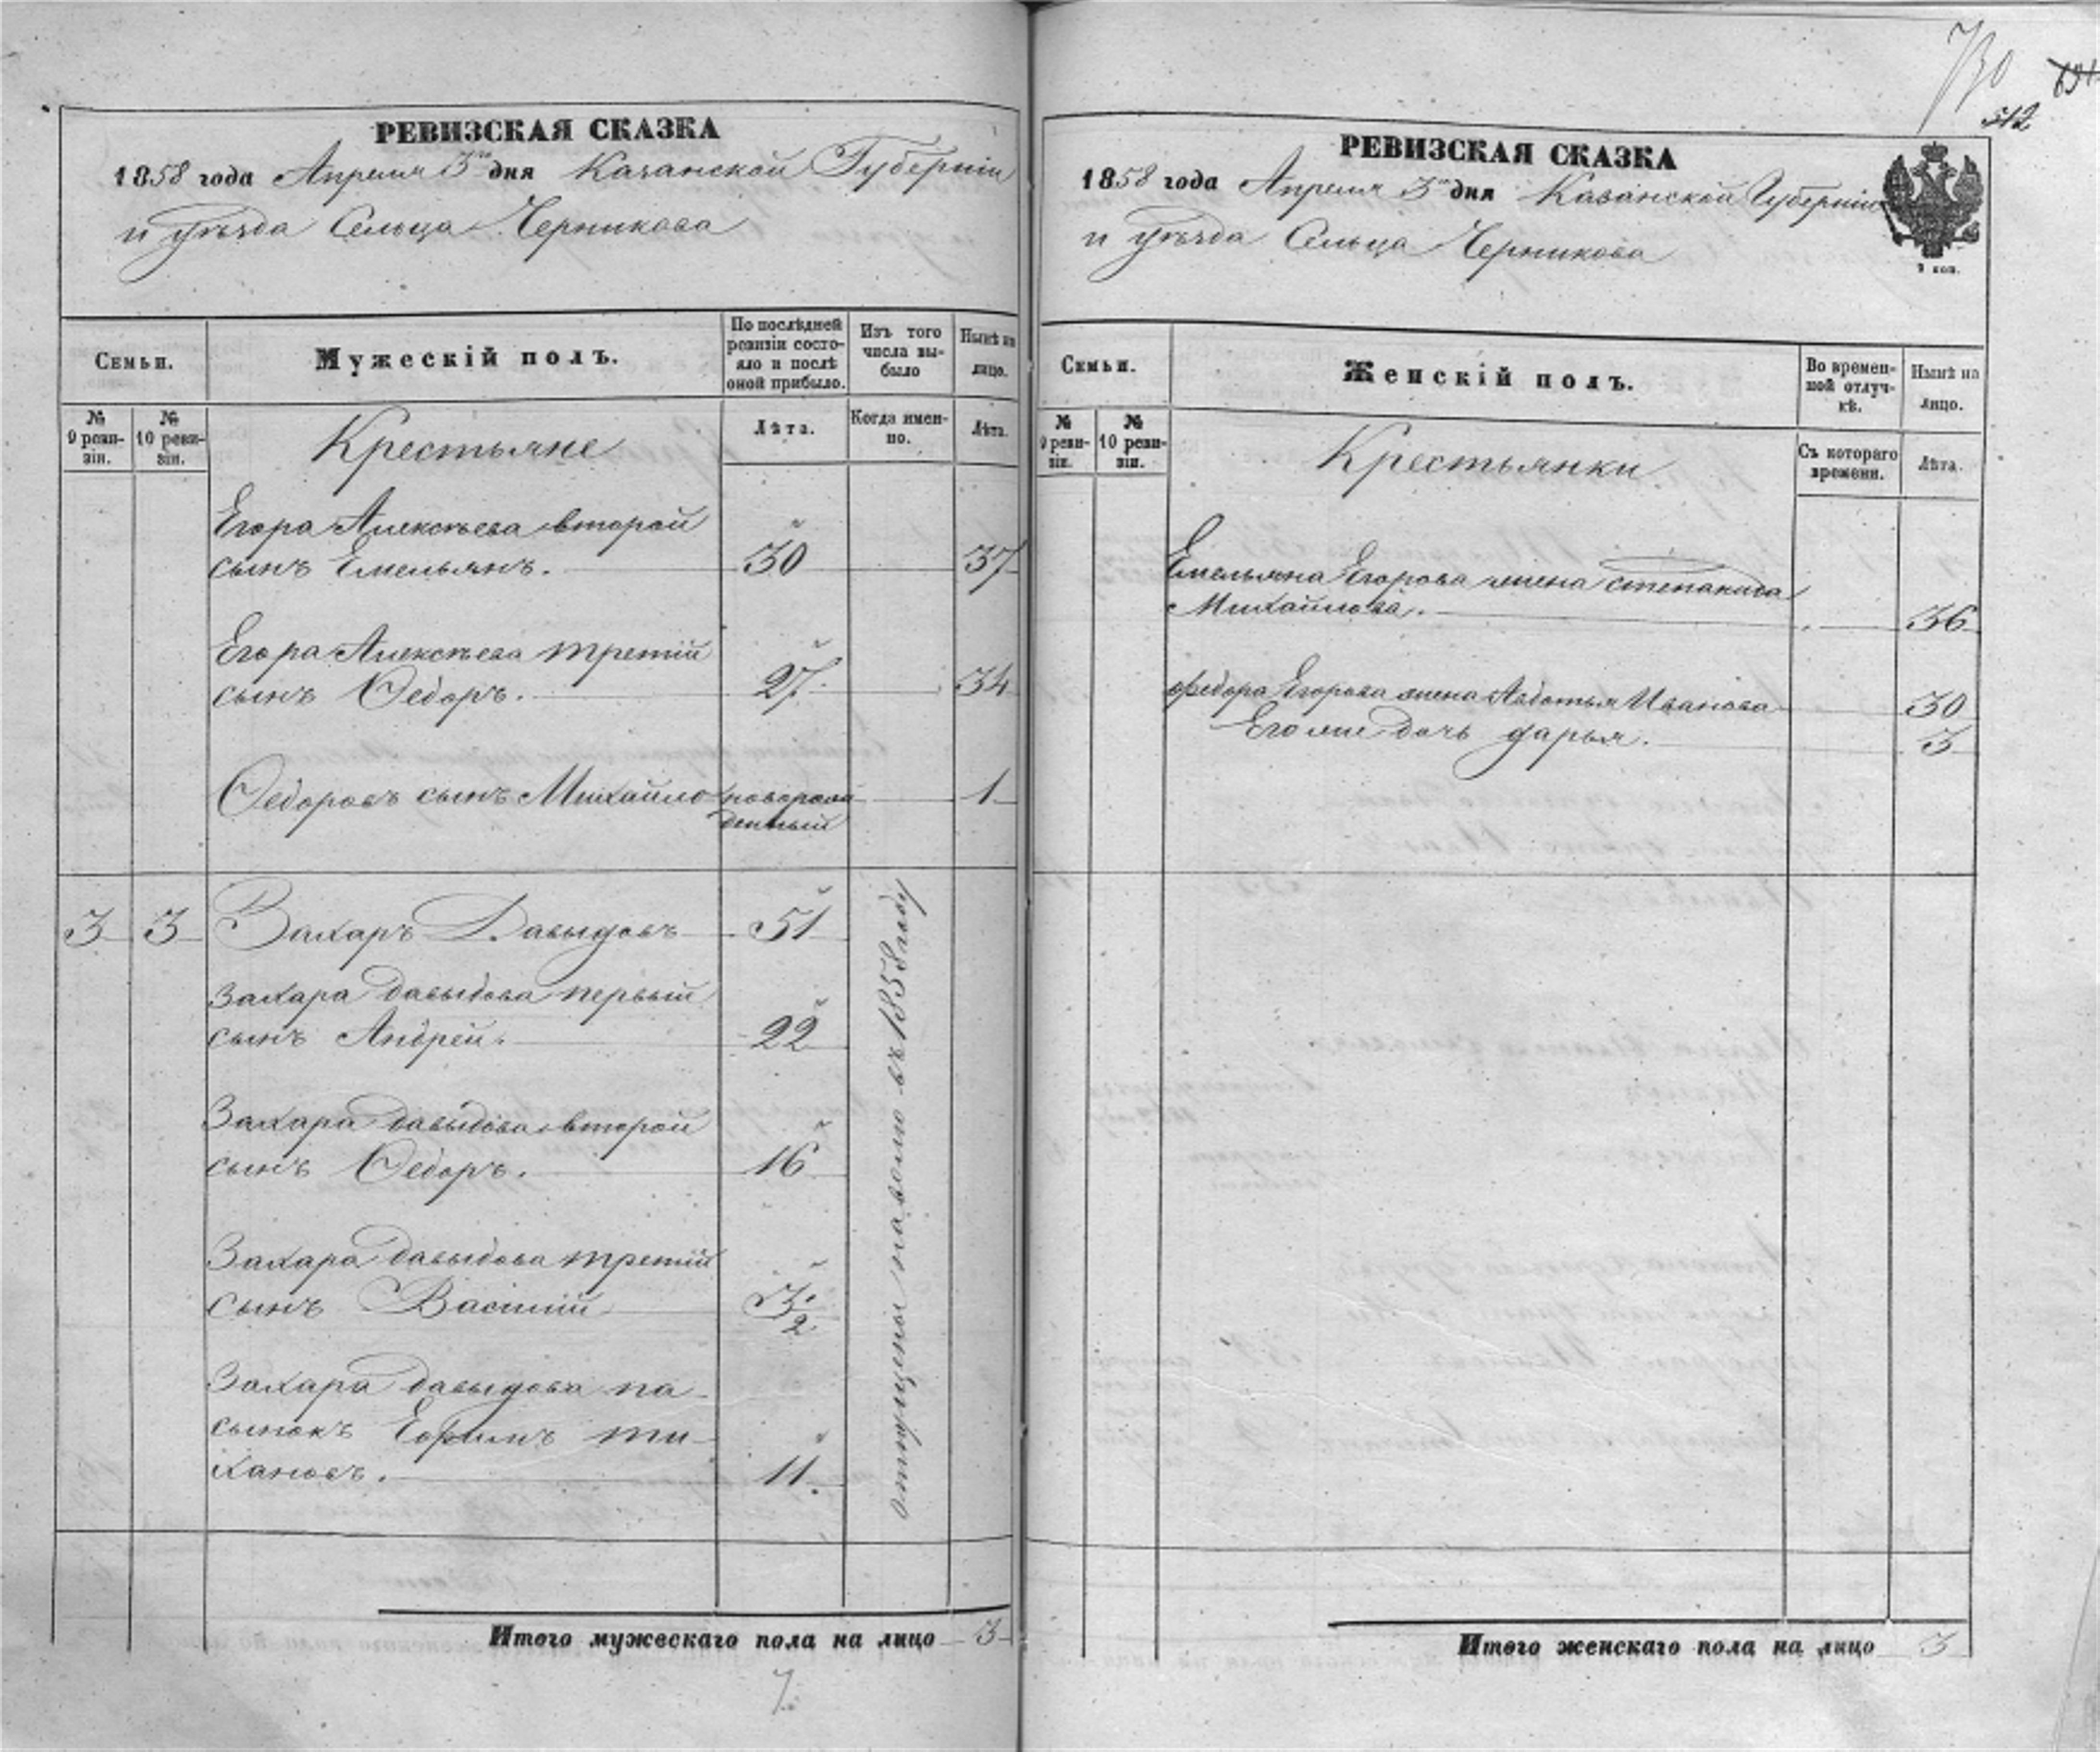 РЕВИЗСКАЯ СКАЗКА
1858 года Апреля 3го дня Казанской Губерніи
и уѣзда Сельца Черникова
Семьи.
Мужескій полъ.
По послѣдней ревизіи состояло и послѣ оной прибыло.
Изъ того числа выбыло
Нынѣ на лицо.
№ 9 ревизіи.
№ 10 ревизіи.
Крестьяне
Лѣта.
Когда именно.
Лѣта.
Егора Алексѣева второй
сынъ Емельянъ. 30 37
Егора Алексѣева третій
сынъ Ѳедоръ. 27. 34
Ѳедоровъ сынъ Михайло новорож 1
денный
3 3 Захаръ Давыдовъ 51
Захара Давыдова первый
сынъ Андрей. 22
Захара Давыдова второй
сынъ Ѳедоръ. 16
Захара Давыдова третій
сынъ Василій 3.
2
Захара Давыдова па-
сынокъ Ефимъ ти-
хановъ. 11.
отпущены на волю въ 1858 году
Итого мужескаго пола на лицо 3
7.
730
512
РЕВИЗСКАЯ СКАЗКА
1858 года Апреля 3го дня Казанской Губерніи
и уѣзда Сельца Черникова
Семьи.
Женскій полъ.
Во временной отлучкѣ.
Нынѣ на лицо.
№ 9 ревизіи.
№ 10 ревизіи.
Крестьянки.
Съ котораго времени.
Лѣта.
Емельяна Егорова жена степанида
Михайлова. 36
федора Егорова жена Авдотья Иванова 30
Его же дочь дарья. 3
Итого женскаго пола на лицо 3